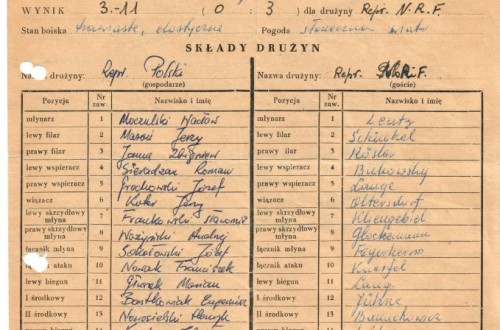 WYNIK 3-11 ( 0 : 3 ) dla drużyny Repr. N.R.F.
Stan boiska elastyczne Pogoda słoneczna
SKŁADY DRUŻYN
Na drużyny: Repr. Polski Nazwa drużyny: Repr. N.R.F.
(gospodarze) (goście)
Pozycja Nr zaw. Nazwisko i imię Nr zaw. Nazwisko i imię
młynarz 1 Moczulski Wacław młynarz 1 Lentz
lewy filar 2 Jerzy lewy filar 2 Schinkel
prawy filar 3 Janus Zbigniew prawy filar 3 Köster
lewy wspieracz 4 Sieradzan Roman lewy wspieracz 4 Bukowsky
prawy wspieracz 5 Grochowski Józef prawy wspieracz 5
wiązacz 6 Jerzy wiązacz 6
lewy skrzydłowy młyna 7 Frankowski Sławomir lewy skrzydłowy młyna 7
prawy skrzydłowy młyna 8 Andrzej prawy skrzydłowy młyna 8 Glockemann
łącznik młyna 9 Sokołowski Józef łącznik młyna 9
łącznik ataku 10 Nowak Franciszek łącznik ataku 10
lewy biegun 11 Marian lewy biegun 11
I środkowy 12 Bartkowiak Eugeniusz I środkowy 12
II środkowy 13 Nowosielski Henryk II środkowy 13